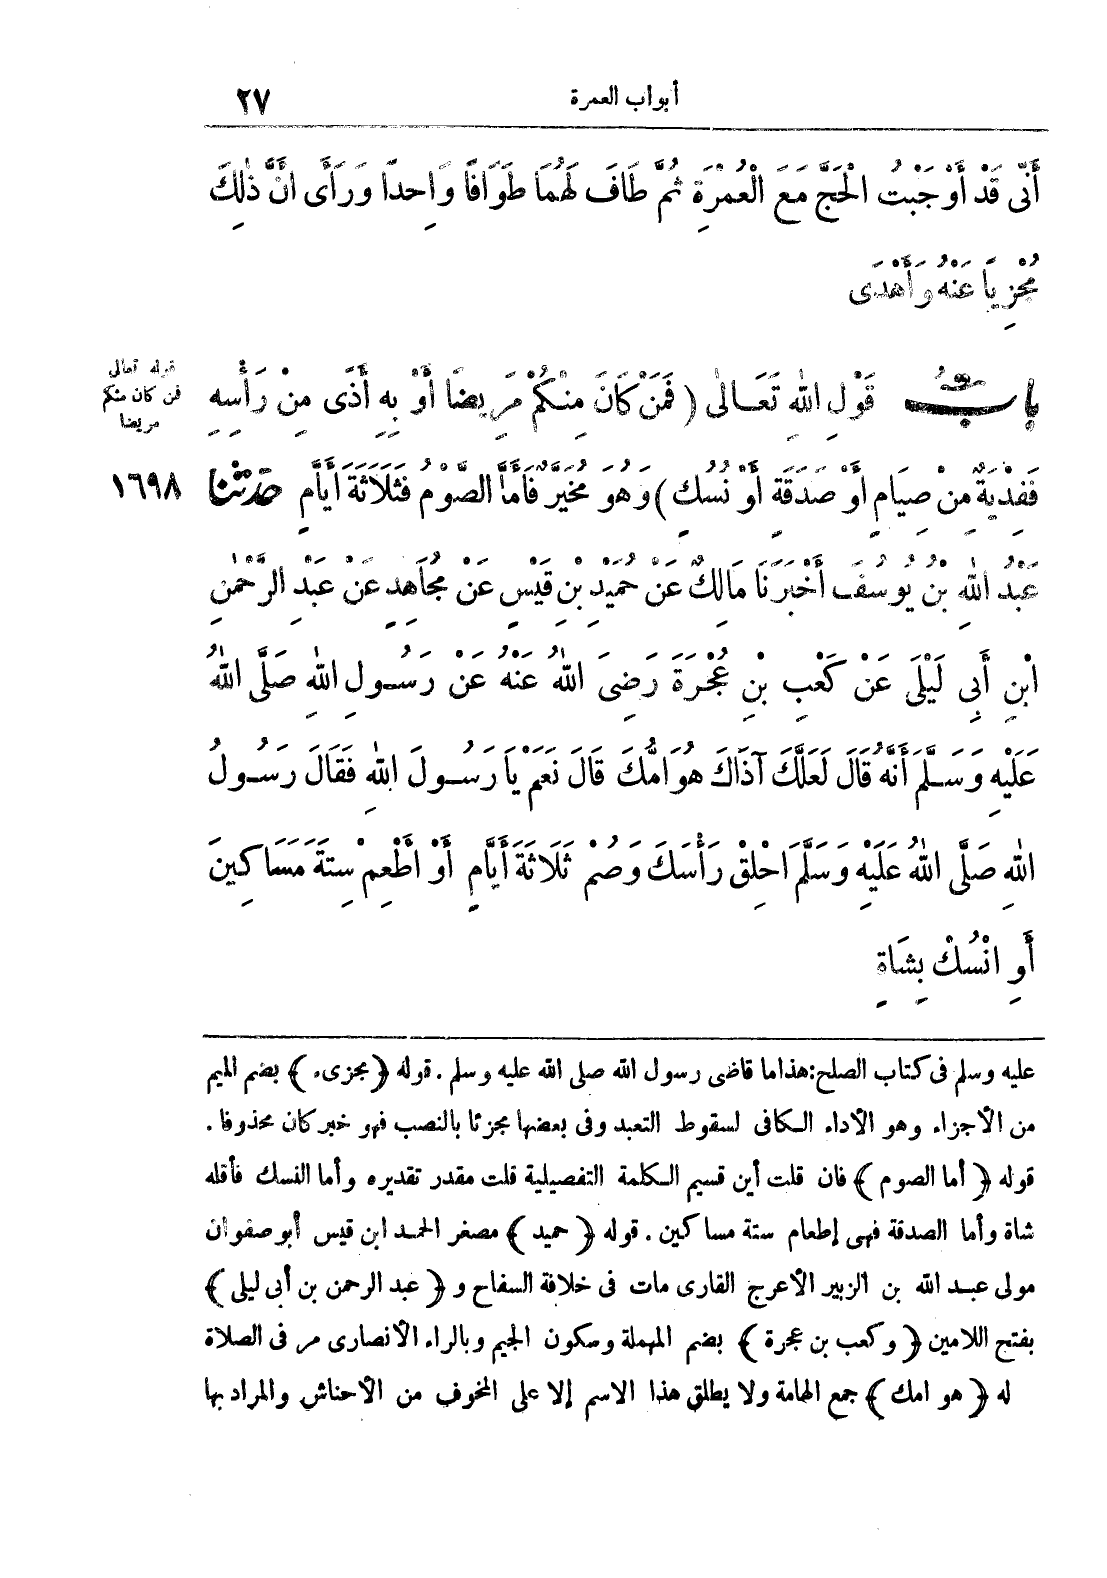 أبواب العمرة ٢٧
أَنِّى قَدْ أَوْجَبْتُ الْحَجَّ مَعَ الْعُمْرَةِ ثُمَّ طَافَ لَهُمَا طَوَافًا وَاحِدًا وَرَأَى أَنَّ ذٰلِكَ
مُجْزِيًا عَنْهُ وَأَهْدَى
بابُ قَوْلِ اللهِ تَعَالٰى ( فَمَنْ كَانَ مِنْكُمْ مَرِيضًا أَوْ بِهِ أَذًى مِنْ رَأْسِهِ
قوله تعالى
فمن كان منكم
مريضا
فَفِدْيَةٌ مِنْ صِيَامٍ أَوْ صَدَقَةٍ أَوْ نُسُكٍ ) وَهُوَ مُخَيَّرٌ فَأَمَّا الصَّوْمُ فَثَلَاثَةُ أَيَّامٍ حَدَّثَنَا ١٦٩٨
عَبْدُ اللهِ بْنُ يُوسُفَ أَخْبَرَنَا مَالِكٌ عَنْ حُمَيْدِ بْنِ قَيْسٍ عَنْ مُجَاهِدٍ عَنْ عَبْدِ الرَّحْمٰنِ
ابْنِ أَبِى لَيْلَى عَنْ كَعْبِ بْنِ عُجْرَةَ رَضِىَ اللهُ عَنْهُ عَنْ رَسُولِ اللهِ صَلَّى اللهُ
عَلَيْهِ وَسَلَّمَ أَنَّهُ قَالَ لَعَلَّكَ آذَاكَ هَوَامُّكَ قَالَ نَعَمْ يَا رَسُولَ اللهِ فَقَالَ رَسُولُ
اللهِ صَلَّى اللهُ عَلَيْهِ وَسَلَّمَ احْلِقْ رَأْسَكَ وَصُمْ ثَلَاثَةَ أَيَّامٍ أَوْ أَطْعِمْ سِتَّةَ مَسَاكِينَ
أَوِ انْسُكْ بِشَاةٍ
عليه وسلم فى كتاب الصلح:هذا ما قاضى رسول الله صلى الله عليه وسلم . قوله ﴿ مجزىء ﴾ بضم الميم
من الأجزاء وهو الأداء الكافى لسقوط التعبد وفى بعضها مجزئا بالنصب فهو خبر كان محذوفا .
قوله ﴿ أما الصوم ﴾ فان قلت أين قسيم الكلمة التفصيلية قلت مقدر تقديره وأما النسك فأقله
شاة وأما الصدقة فهى إطعام ستة مساكين . قوله ﴿ حميد ﴾ مصغر الحمد ابن قيس أبو صفوان
مولى عبد الله بن الزبير الأعرج القارى مات فى خلافة السفاح و ﴿ عبد الرحمن بن أبى ليلى ﴾
بفتح اللامين ﴿ وكعب بن عجرة ﴾ بضم المهملة وسكون الجيم وبالراء الأنصارى مر فى الصلاة
له ﴿ هوامك ﴾ جمع الهامة ولا يطلق هذا الاسم إلا على المخوف من الأحناش والمراد بها